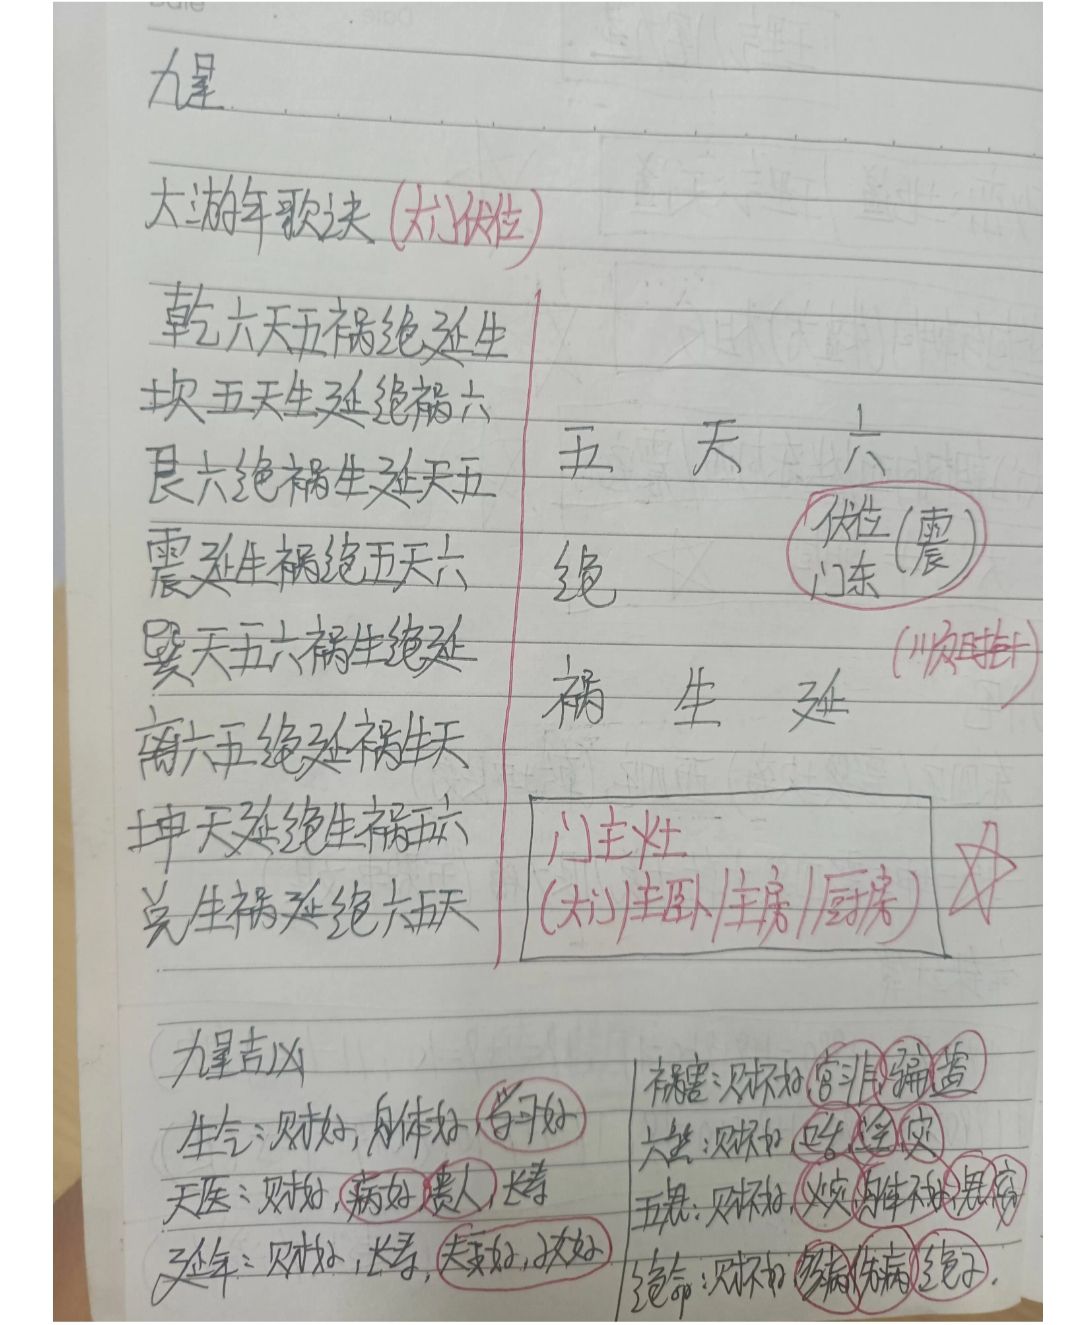 九星
大游年歌诀 (大门伏位)
乾六天五祸绝延生
坎五天生延绝祸六
艮六绝祸生延天五
震延生祸绝五天六
巽天五六祸生绝延
离六五绝延祸生天
坤天延绝生祸五六
兑生祸延绝六五天
五 天 六
绝 伏位 (震)
门东
(顺时针)
祸 生 延
门主灶
(大门/主卧/主房/厨房)
九星吉凶
生气:财好,身体好,学习好
天医:财好,病好,贵人,长寿
延年:财好,长寿,夫妻好,
祸害:财不好 官非 骗 盗
六煞:财不好 灾
五鬼:财不好,火灾 身体不好,鬼
绝命:财不好 绝子.